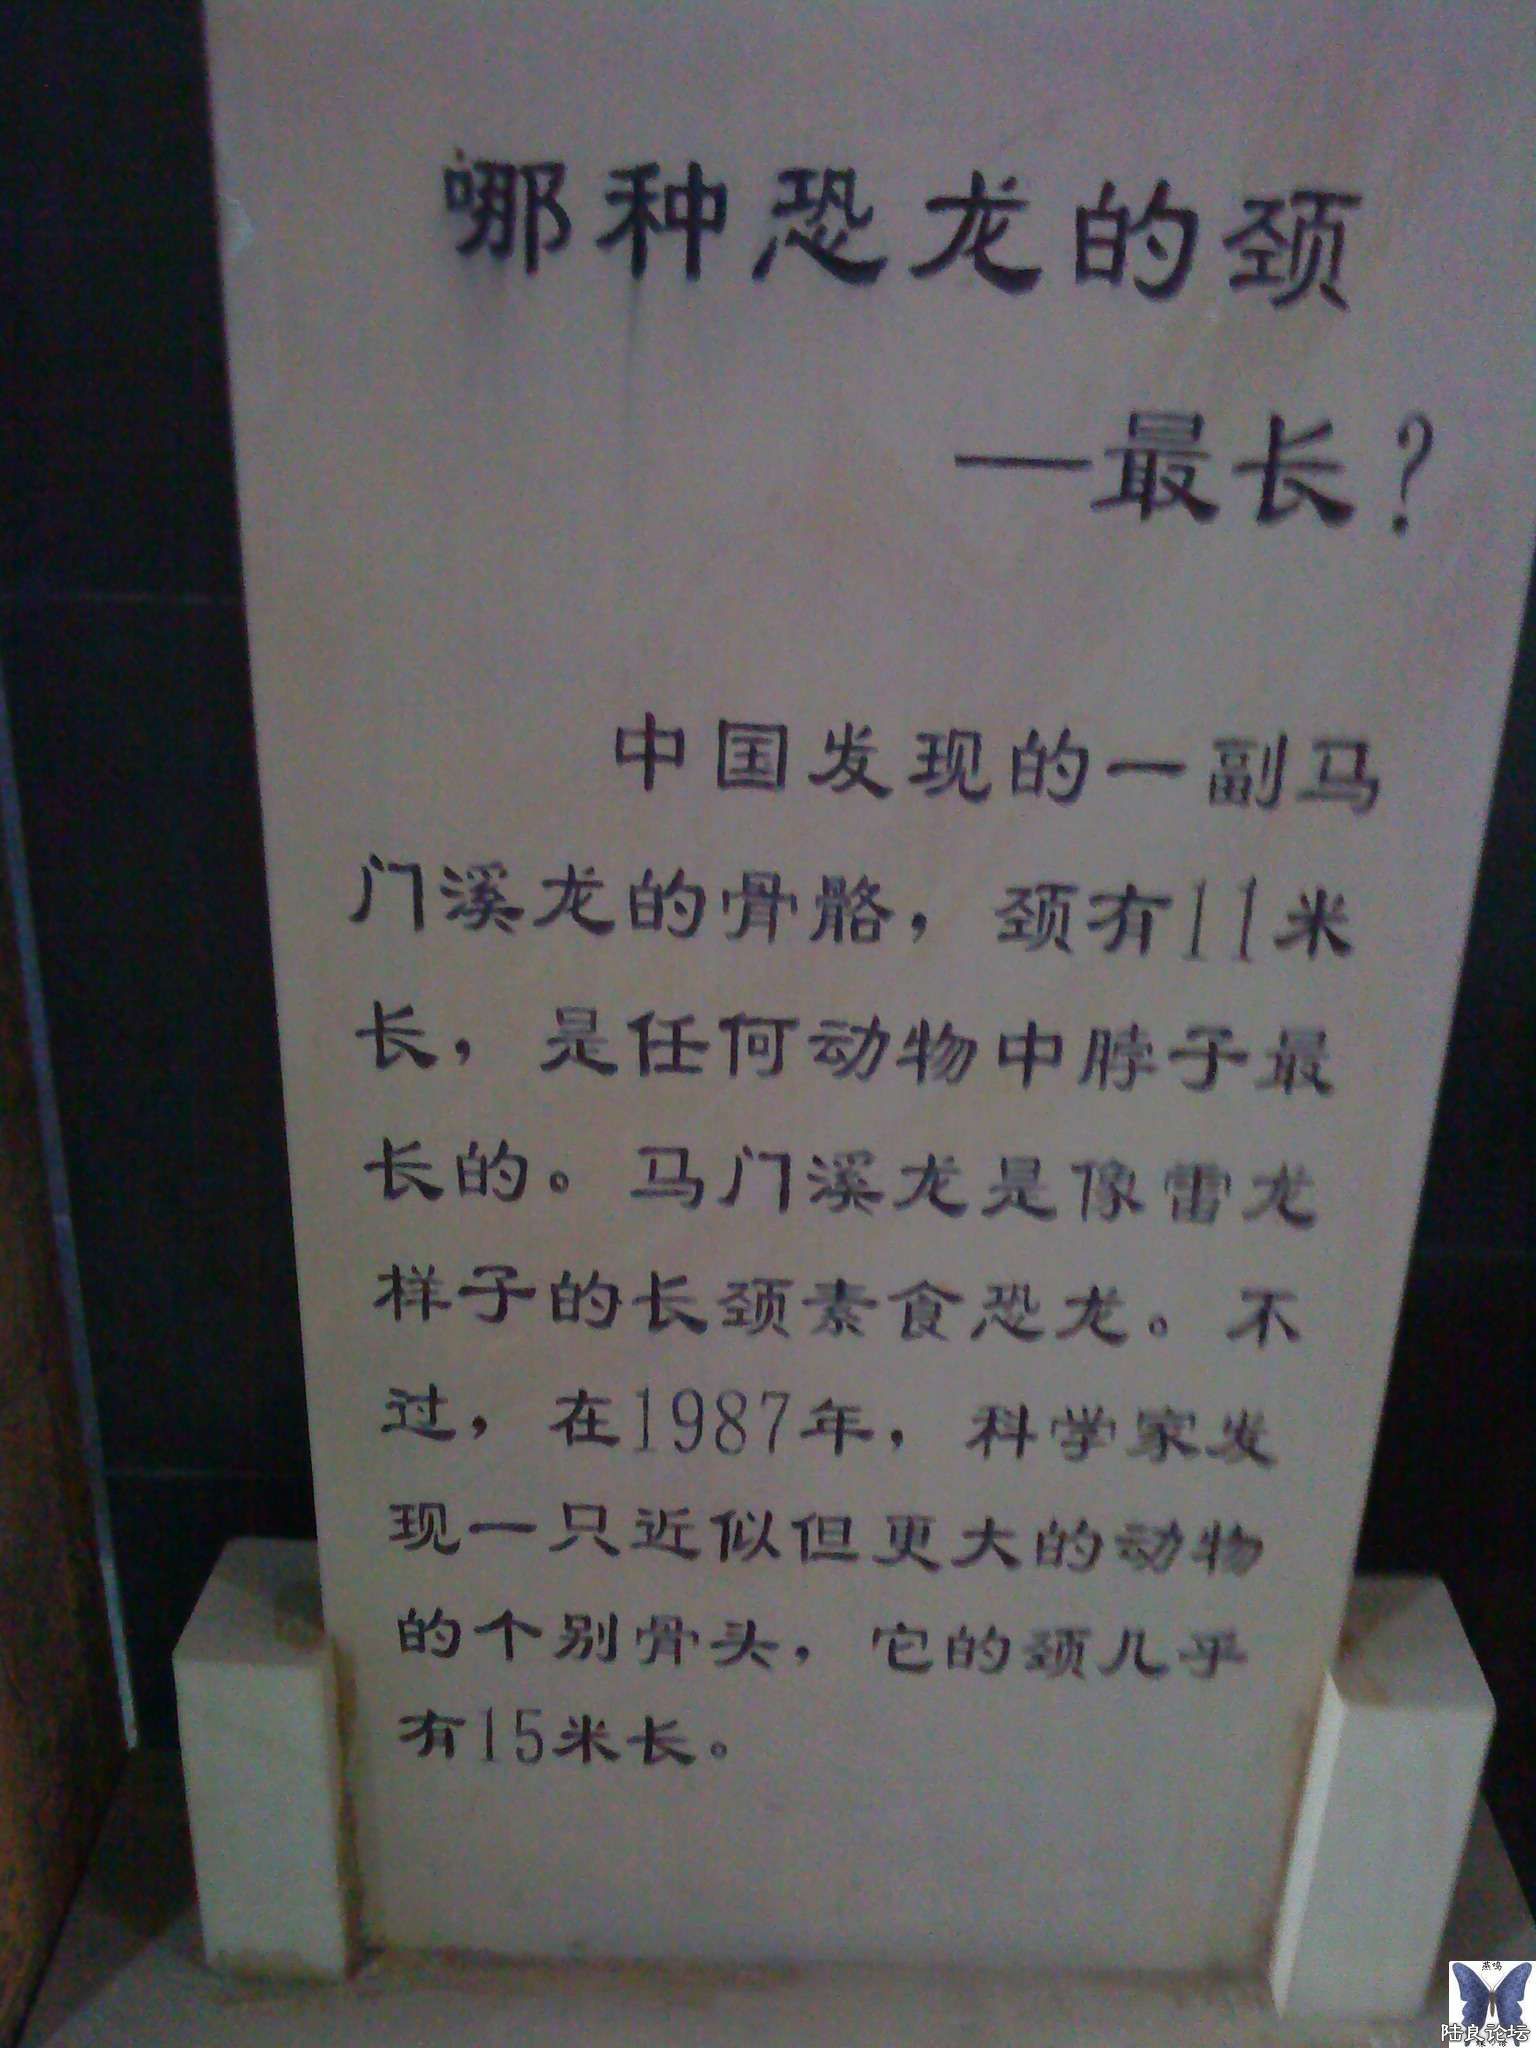 哪种恐龙的颈
—最长？
中国发现的一副马
门溪龙的骨骼，颈有11米
长，是任何动物中脖子最
长的。马门溪龙是像雷龙
样子的长颈素食恐龙。不
过，在1987年，科学家发
现一只近似但更大的动物
的个别骨头，它的颈几乎
有15米长。
燕鸣
陆良论坛